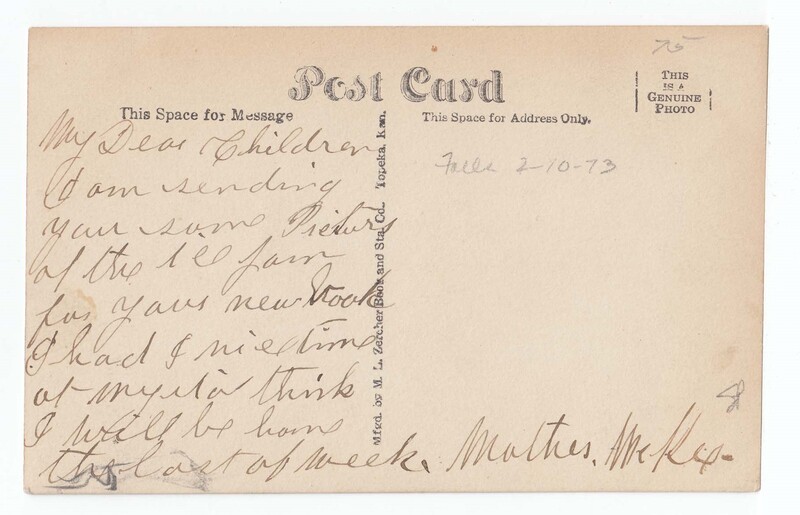 75
Post Card
THIS
IS A
GENUINE
PHOTO
This Space for Message
This Space for Address Only.
Mfgd. by M. L. Zercher Book and Sta. Co. Topeka, Kan.
2-10-73
My Dear Children
I am sending
you some Picturs
of the ice jam
for your new book
I had I nice time
at think
I will be home
the last of week. Mother. McKee